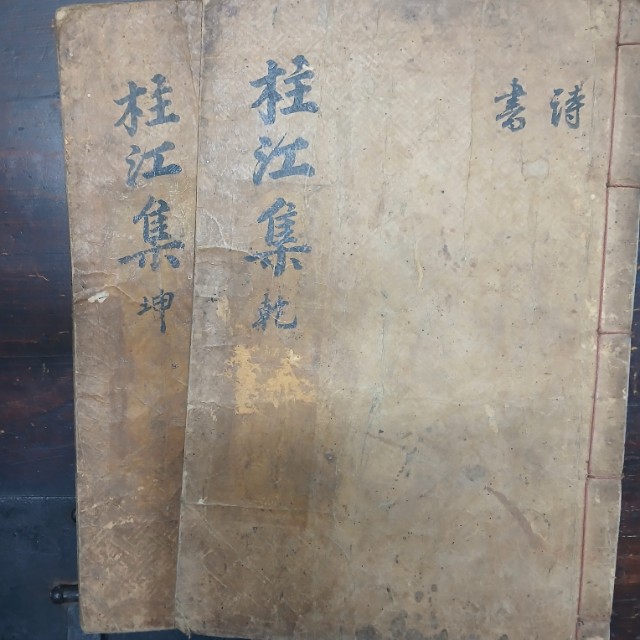 詩
書
柱江集 乾
柱江集 坤